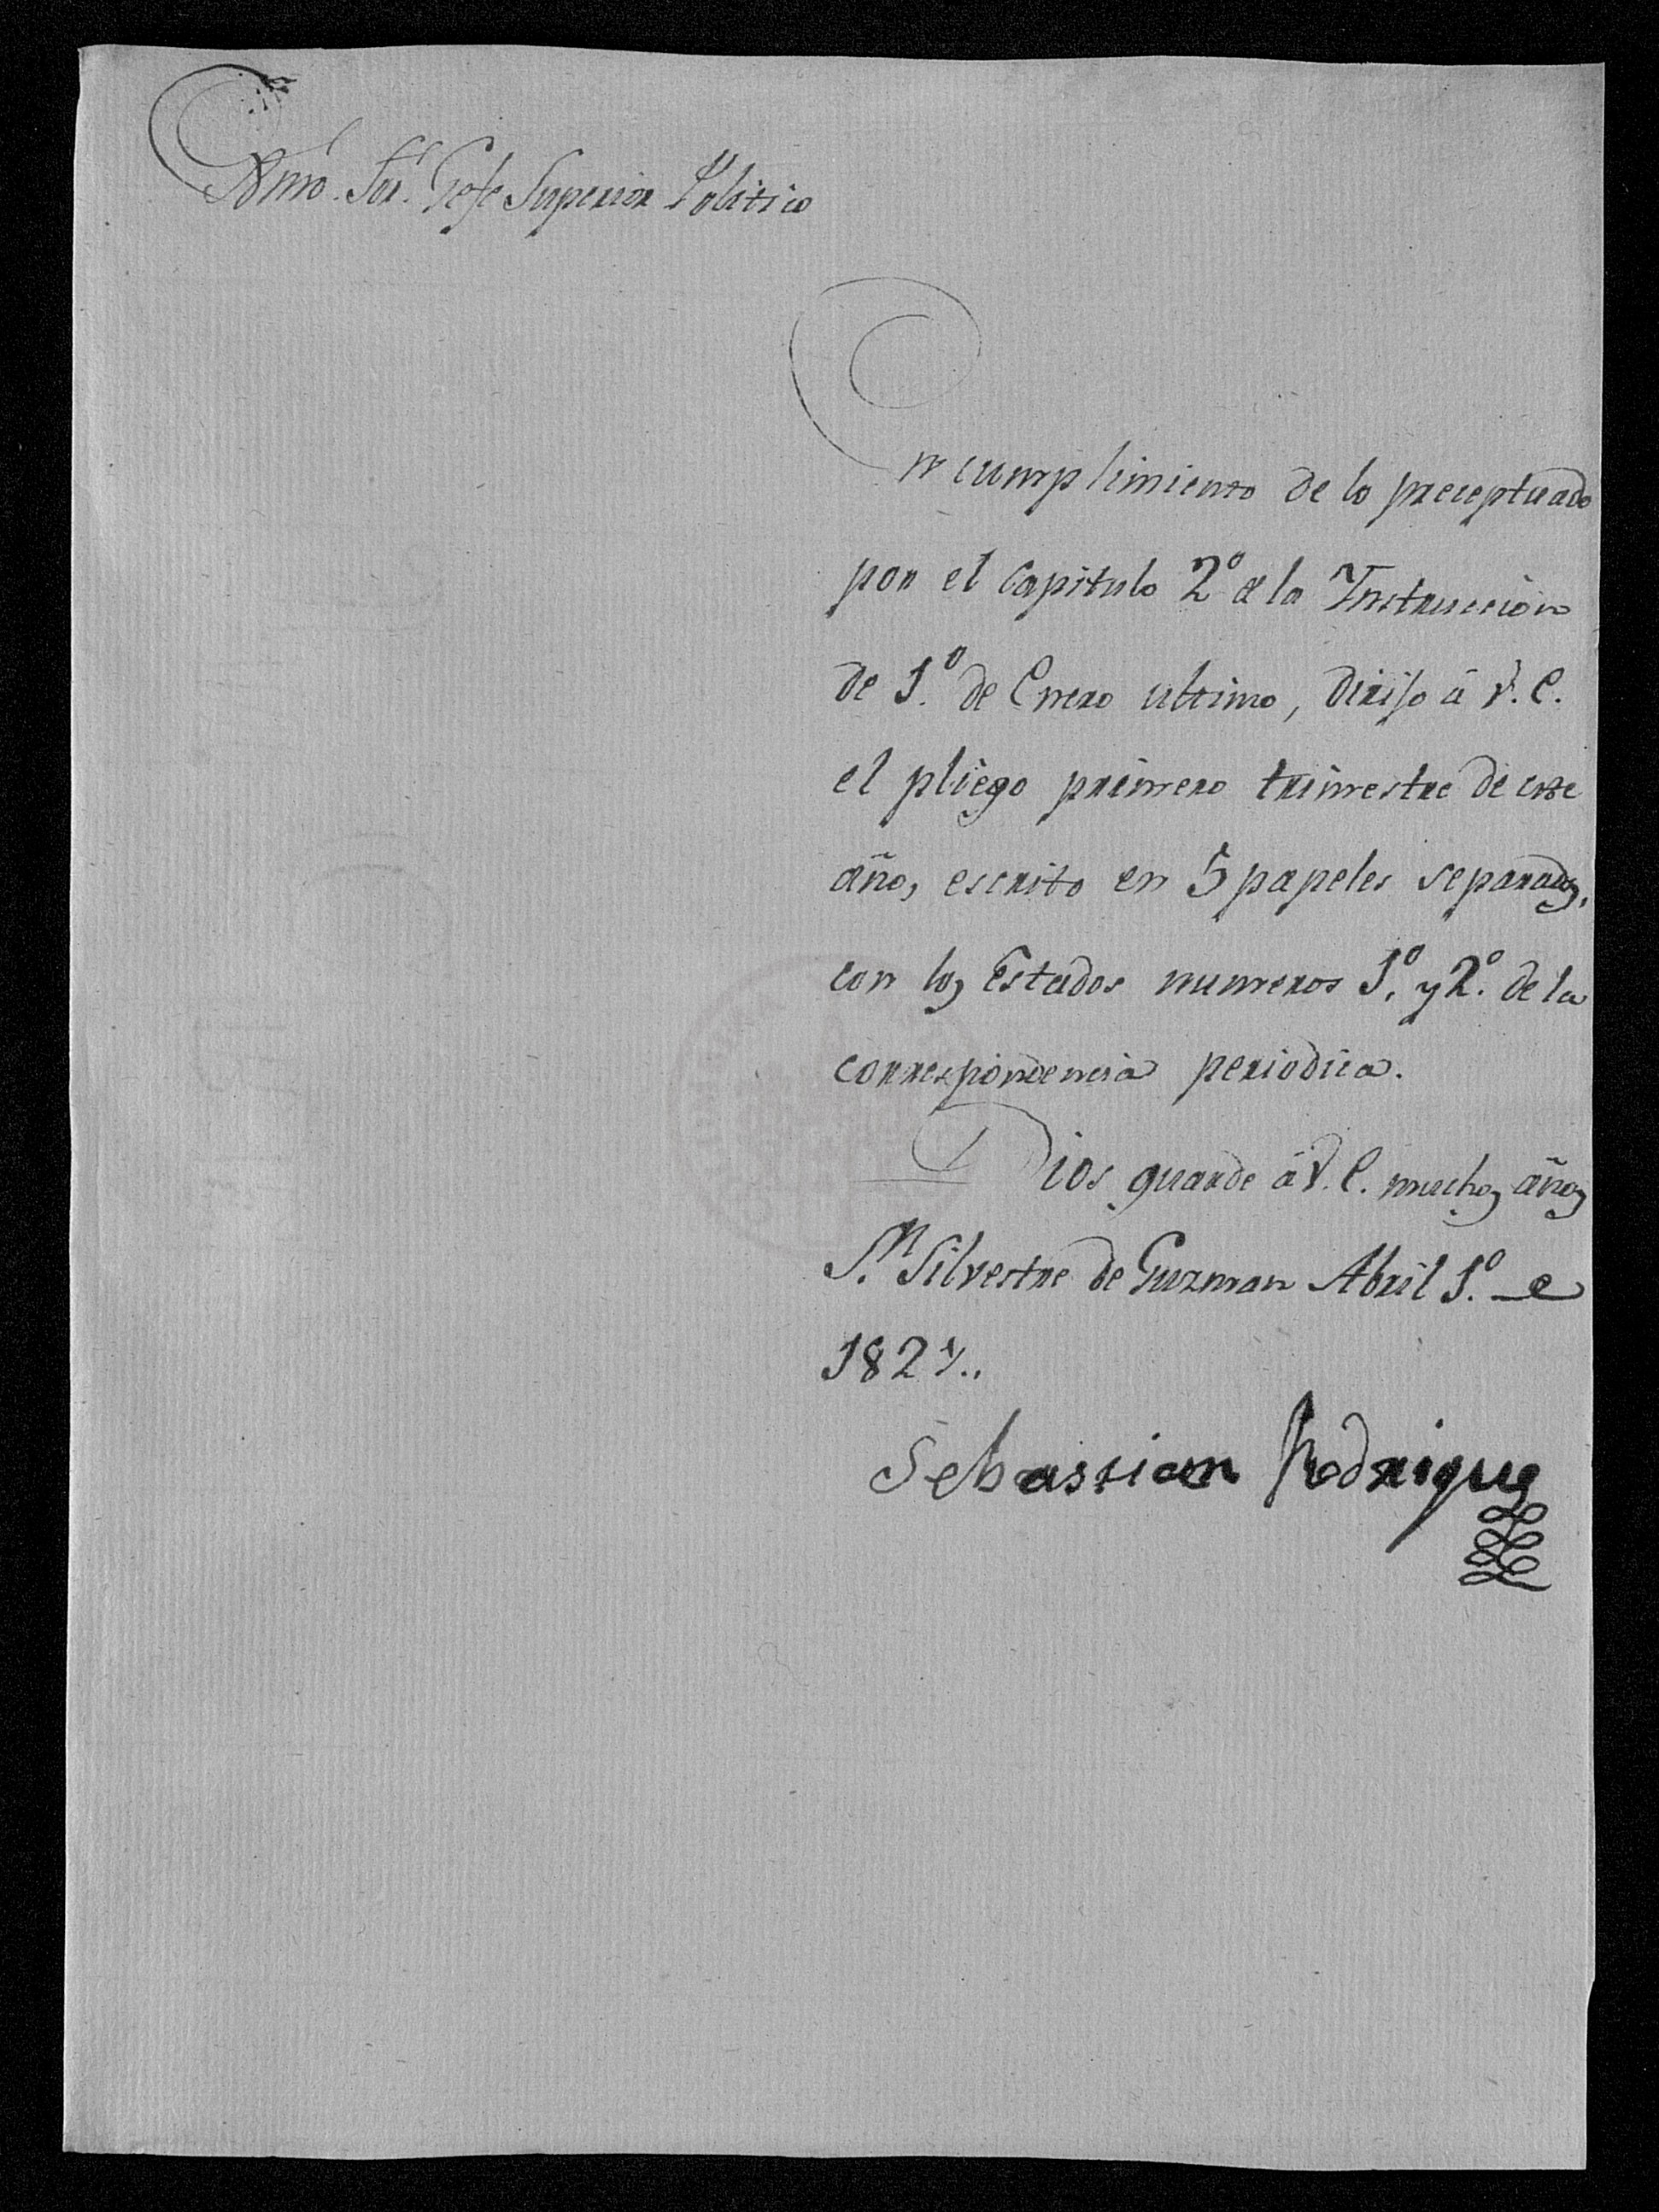 Exmo. Sor. Gefe Superior Politico
En cumplimiento de lo preceptuado
por el Capitulo 2º de la Instruccion
de 1º. de Enero ultimo, dirijo á V. E.
el pliego primero trimestre de este
año, escrito en 5 papeles separados,
con los Estados numeros 1º. y 2º. de la
correspondencia periodica.
Dios guarde á V. E. muchos años
Sn. Silvestre de Guzman Abril 1º. de
1821..
Sebastian Rodrigues